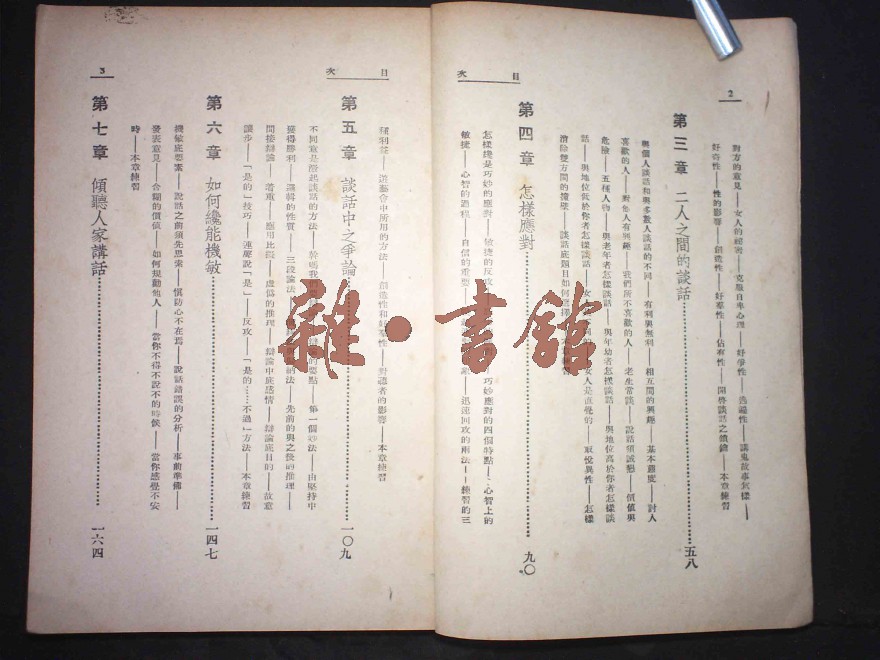 2
對方的意見——女人的秘密——克服自卑心理——好爭性——
好奇性——性的影響——創造性——好羣性——佔有性——開啓談話之鎖鑰——本章練習
第三章 二人之間的談話 五八
與個人談話和與多數人談話的不同——有利與無利——相互間的興趣——基本態度——討人
喜歡的人——對他人有興趣——我們所不喜歡的人——老生常談——說話須誠懇——價值與
危險——五種人物——與老年者怎樣談話——與年幼者怎樣談話——與地位高於你者怎樣談
話——與地位低於你者怎樣談話——女人是直覺的——取悅異性——怎樣
消除雙方間的牆壁——談話底題目如何選擇
目次
第四章 怎樣應對 九〇
怎樣纔是巧妙的應對——敏捷的反應——巧妙應對的四個特點——心智上的
敏捷——心智的過程——自信的重要——迅速回攻的兩法——練習的三
目次
種利益——遊藝會中所用的方法——創造性和好羣性——對聽者的影響——本章練習
第五章 談話中之爭論 一〇九
不同意是激起談話的方法——第一個辦法——由堅持中
獲得勝利——邏輯的性質——三段論法——先前的與之後的推理——
間接辯論——着重——應用比擬——虛僞的推理——辯論中底感情——辯論底目的——故意
讓步——「是的」技巧——連聲說「是」——反攻——「是的……不過」方法——本章練習
第六章 如何纔能機敏 一四七
機敏底要素——說話之前須先思索——慎防心不在焉——說話錯誤的分析——事前準備——
發表意見——含糊的價值——如何規勸他人——當你不得不說不的時候——當你感覺不安
時——本章練習
3
第七章 傾聽人家講話 一六四
雜·書館